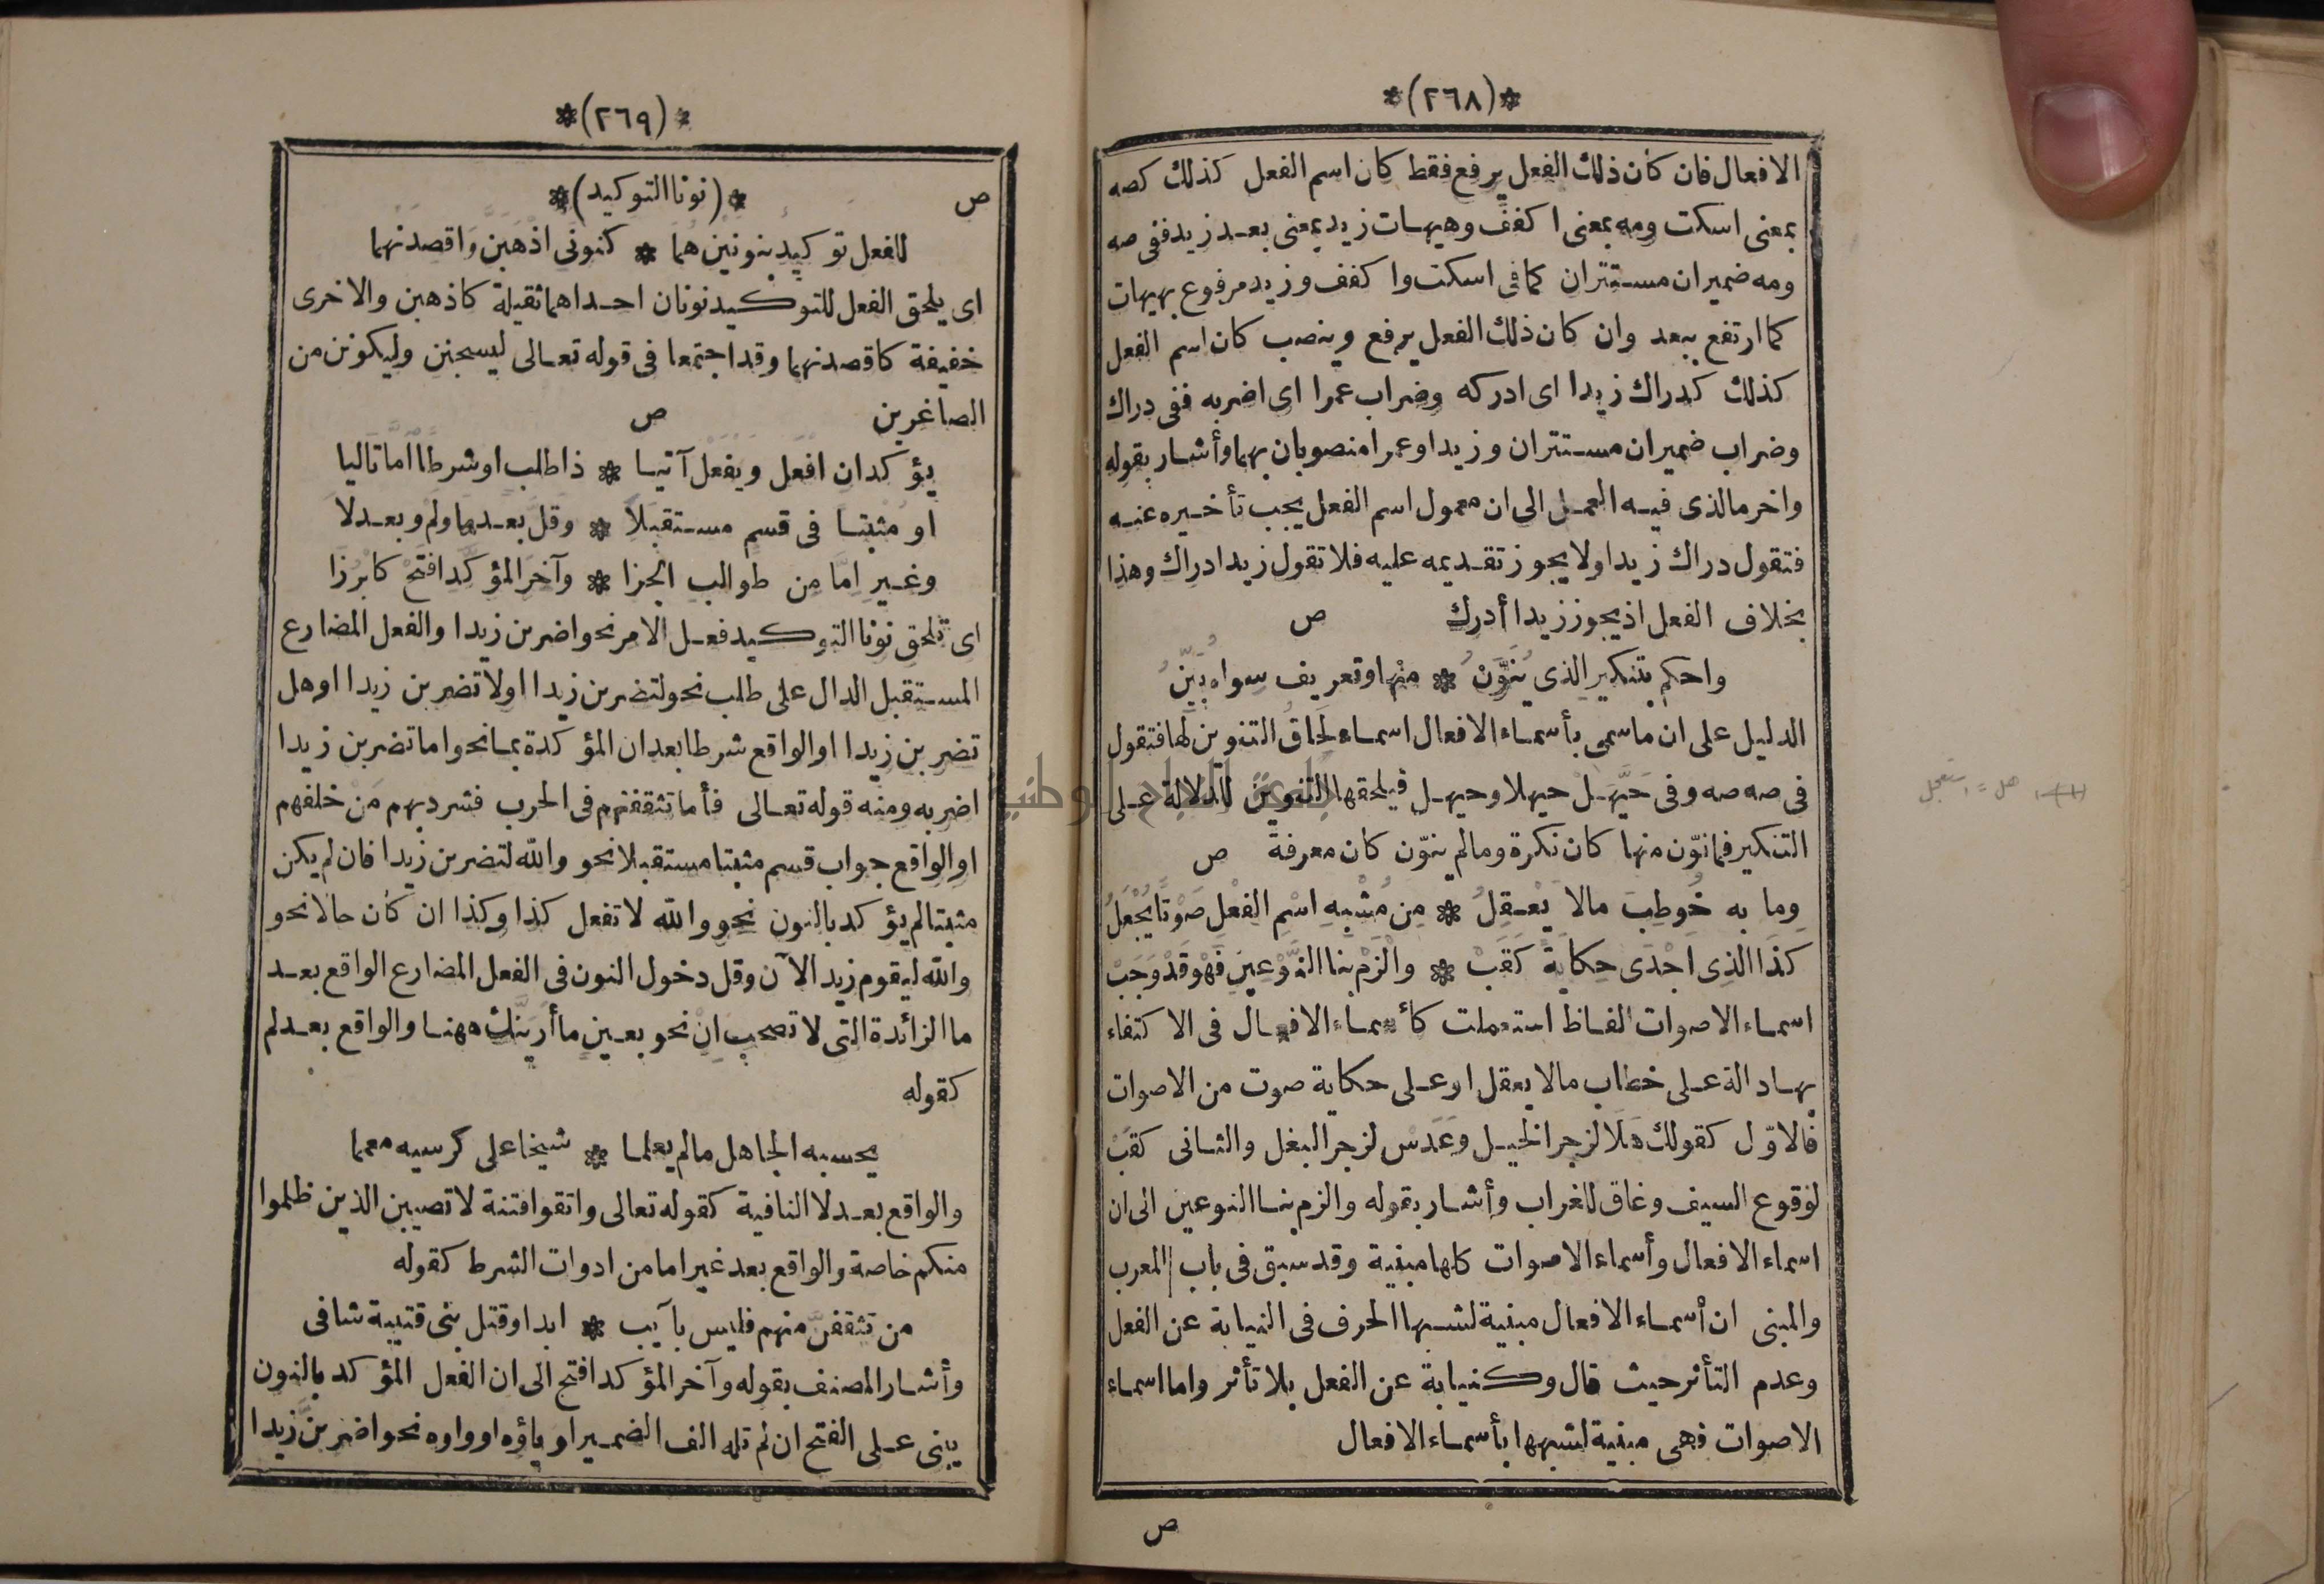 *(٢٦٨)*
الافعال فان كان ذلك الفعل يرفع فقط كان اسم الفعل كذلك كصه
بمعنى اسكت ومه بمعنى اكفف وهيهات زيد بمعنى بعد زيد ففى صه
ومه ضميران مستتران كما فى اسكت واكفف وزيد مرفوع بهيهات
كما ارتفع ببعد وان كان ذلك الفعل يرفع وينصب كان اسم الفعل
كذلك كدراك زيدا اى ادركه وضراب عمرا اى اضربه ففى دراك
وضراب ضميران مستتران وزيدا وعمرا منصوبان بهما وأشار بقوله
واخر مالذى فيه العمل الى ان معمول اسم الفعل يجب تأخيره عنه
فتقول دراك زيدا ولا يجوز تقديمه عليه فلا تقول زيدا دراك وهذا
بخلاف الفعل اذ يجوز زيدا أدرك ص
واحكم بتنكير الذى يُنَوَّنُ * منها وتعريف سواه بَيِّنُ
الدليل على ان ماسمى بأسماء الافعال اسماء لَحاقُ التنوين لها فتقول
فى صه صه وفى حَيَّهَلْ حيهلا وحيهل فيلحقها التنوين للدلالة على
التنكير فمانوّن منها كان نكرة ومالم ينوّن كان معرفة ص
وما به خُوطِبَ مالا يَعْقِلُ * مِن مُشْبِهِ اسْمِ الفِعْلِ صَوْتًا يُجْعَلُ
كَذَا الذِى اجْدَى حِكَايَةً كَقَبْ * والْزَمْ بنا النَّوْعينِ فَهْوَ قَدْ وَجَبْ
اسماء الاصوات الفاظ استعملت كأسماء الافعال فى الاكتفاء
بها دالة على خطاب مالا يعقل اوعلى حكاية صوت من الاصوات
فالاوّل كقولك هَلَا لزجر الخيل وعَدَسْ لزجر البغل والثانى كقَبْ
لوقوع السيف وغاق للغراب وأشار بقوله والزم بنا النوعين الى ان
اسماء الافعال وأسماء الاصوات كلها مبنية وقد سبق فى باب المعرب
والمبنى ان أسماء الافعال مبنية لشبهها الحرف فى النيابة عن الفعل
وعدم التأثر حيث قال وكنيابة عن الفعل بلا تأثر واما اسماء
الاصوات فهى مبنية لشبهها بأسماء الافعال
ص
*(٢٦٩)*
ص *(نونا التوكيد)*
للفعل توكيد بنونين هُما * كنونى اذْهَبَنَّ وَاقصِدَنْهما
اى يلحق الفعل للتوكيد نونان احداهما ثقيلة كاذهبن والاخرى
خفيفة كاقصدنهما وقد اجتمعا فى قوله تعالى ليسجنن وليكونن من
الصاغرين ص
يؤكدان افعَل ويَفْعَل آتيا * ذا طلب او شرطًا امّا تاليا
او مُثبتا فى قسم مستقبلاً * وقلّ بعد ما ولم وبعد لا
وغيرِ امّا مِن طوالبِ الجزا * وآخرَ المؤكَّدِ افْتَحْ كابْرُزَا
اى تلحق نونا التوكيد فعل الامر نحو اضربن زيدا والفعل المضارع
المستقبل الدال على طلب نحو لتضربن زيدا اولا تضربن زيدا اوهل
تضربن زيدا او الواقع شرطا بعد ان المؤكدة بما نحو اما تضربن زيدا
اضربه ومنه قوله تعالى فأما تثقفنهم فى الحرب فشرد بهم مَن خلفهم
او الواقع جواب قسم مثبتا مستقبلا نحو والله لتضربن زيدا فان لم يكن
مثبتا لم يؤكد بالنون نحو والله لا تفعل كذا وكذا ان كان حالا نحو
والله ليقوم زيد الآن وقل دخول النون فى الفعل المضارع الواقع بعد
ما الزائدة التى لا تصحب انْ نحو بعينٍ ما أرَيَنَّك ههنا والواقع بعد لم
كقوله
يحسبه الجاهل مالم يعلما * شيخا على كرسيه معمما
والواقع بعد لا النافية كقوله تعالى واتقوا فتنة لا تصيبن الذين ظلموا
منكم خاصة والواقع بعد غير اما من ادوات الشرط كقوله
من تثقفنّ منهم فليس بآيب * ابدا وقتل بنى قتيبة شافى
وأشار المصنف بقوله وآخر المؤكد افتح الى ان الفعل المؤكد بالنون
يبنى على الفتح ان لم تله الف الضمير او ياؤه او واوه نحو اضربنَّ زيدا